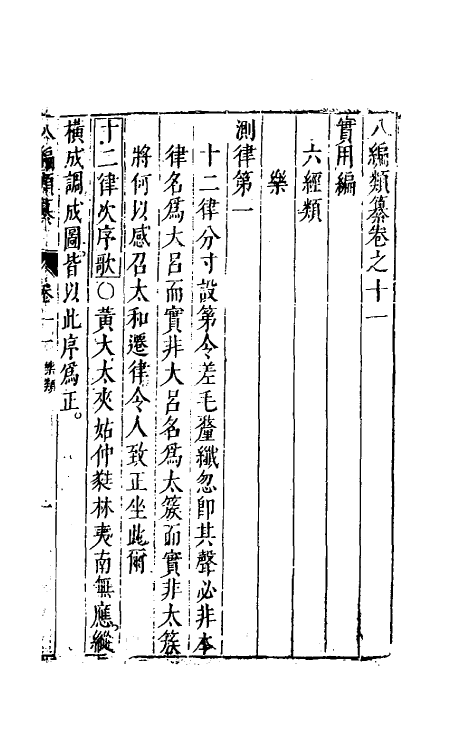 八編類纂卷之十一
實用編
六經類
樂
測律第一
十二律分寸設第令差毛釐纖忽卽其聲必非本
律名爲大呂而實非大呂名爲太簇而實非太簇
將何以感召太和遷律令人致正坐此爾
十二律次序歌〇黃大太夾姑仲蕤林夷南無應縱
橫成調成圖皆以此序爲正。
八編類纂 卷十一 樂類 一